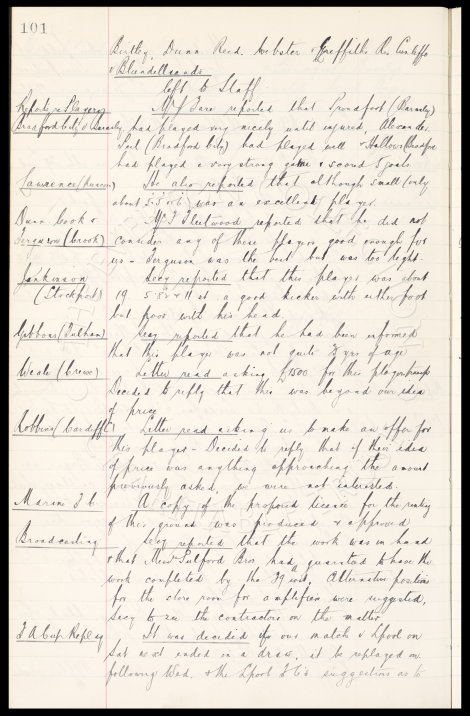 101
Birtley, Dunn Reed, Webster & Griffiths Res Cunliffe
& Blundellsands
left to Staff.
Reports re Players Mr J Fare reported that Troudfoot (Barnsley)
Bradford City & Barnsley had played very nicely until injured. Alexander
Tait (Bradford City) had played well & Hallows (Bradford
had played a very strong game & scored 5 goals.
Lawrence (Runcorn) He also reported that although small (only
about 5.5 or 6) was an excellent player.
Dunn Cook & Mr J Fleetwood reported that he did not
Ferguson (Crook) consider any of these players good enough for
us - Ferguson was the best but was too light.
Jenkinson Secy reported that this player was about
(Stockport) 19 5'8" & 11 st. a good kicker with either foot
but poor with his head.
Gibbons (Fulham) Secy reported that he had been informed
that this player was not quite yrs of age
Weale (Crewe) Letter read asking £1500 for this players
Decided to reply that this was beyond our idea
of price
Robbins (Cardiff) Letter read asking us to make an offer for
this player - Decided to reply that if their idea
of price was anything approaching the amount
previously asked, we were not interested.
Marine F.C. A copy of the proposed licence for the renting
of this ground was produced & approved
Broadcasting Secy reported that the work was in hand
& that Mess Sulford Bro had guaranteed to have the
work completed by the 29 inst. Alternative positions
for the store room for amplifiers were suggested,
Secy to see the contractors on the matter.
F A Cup Replay It was decided if our match v Lpool on
Sat next ended in a draw, it be replayed on
following Wed. & the Lpool F C's suggestions as to